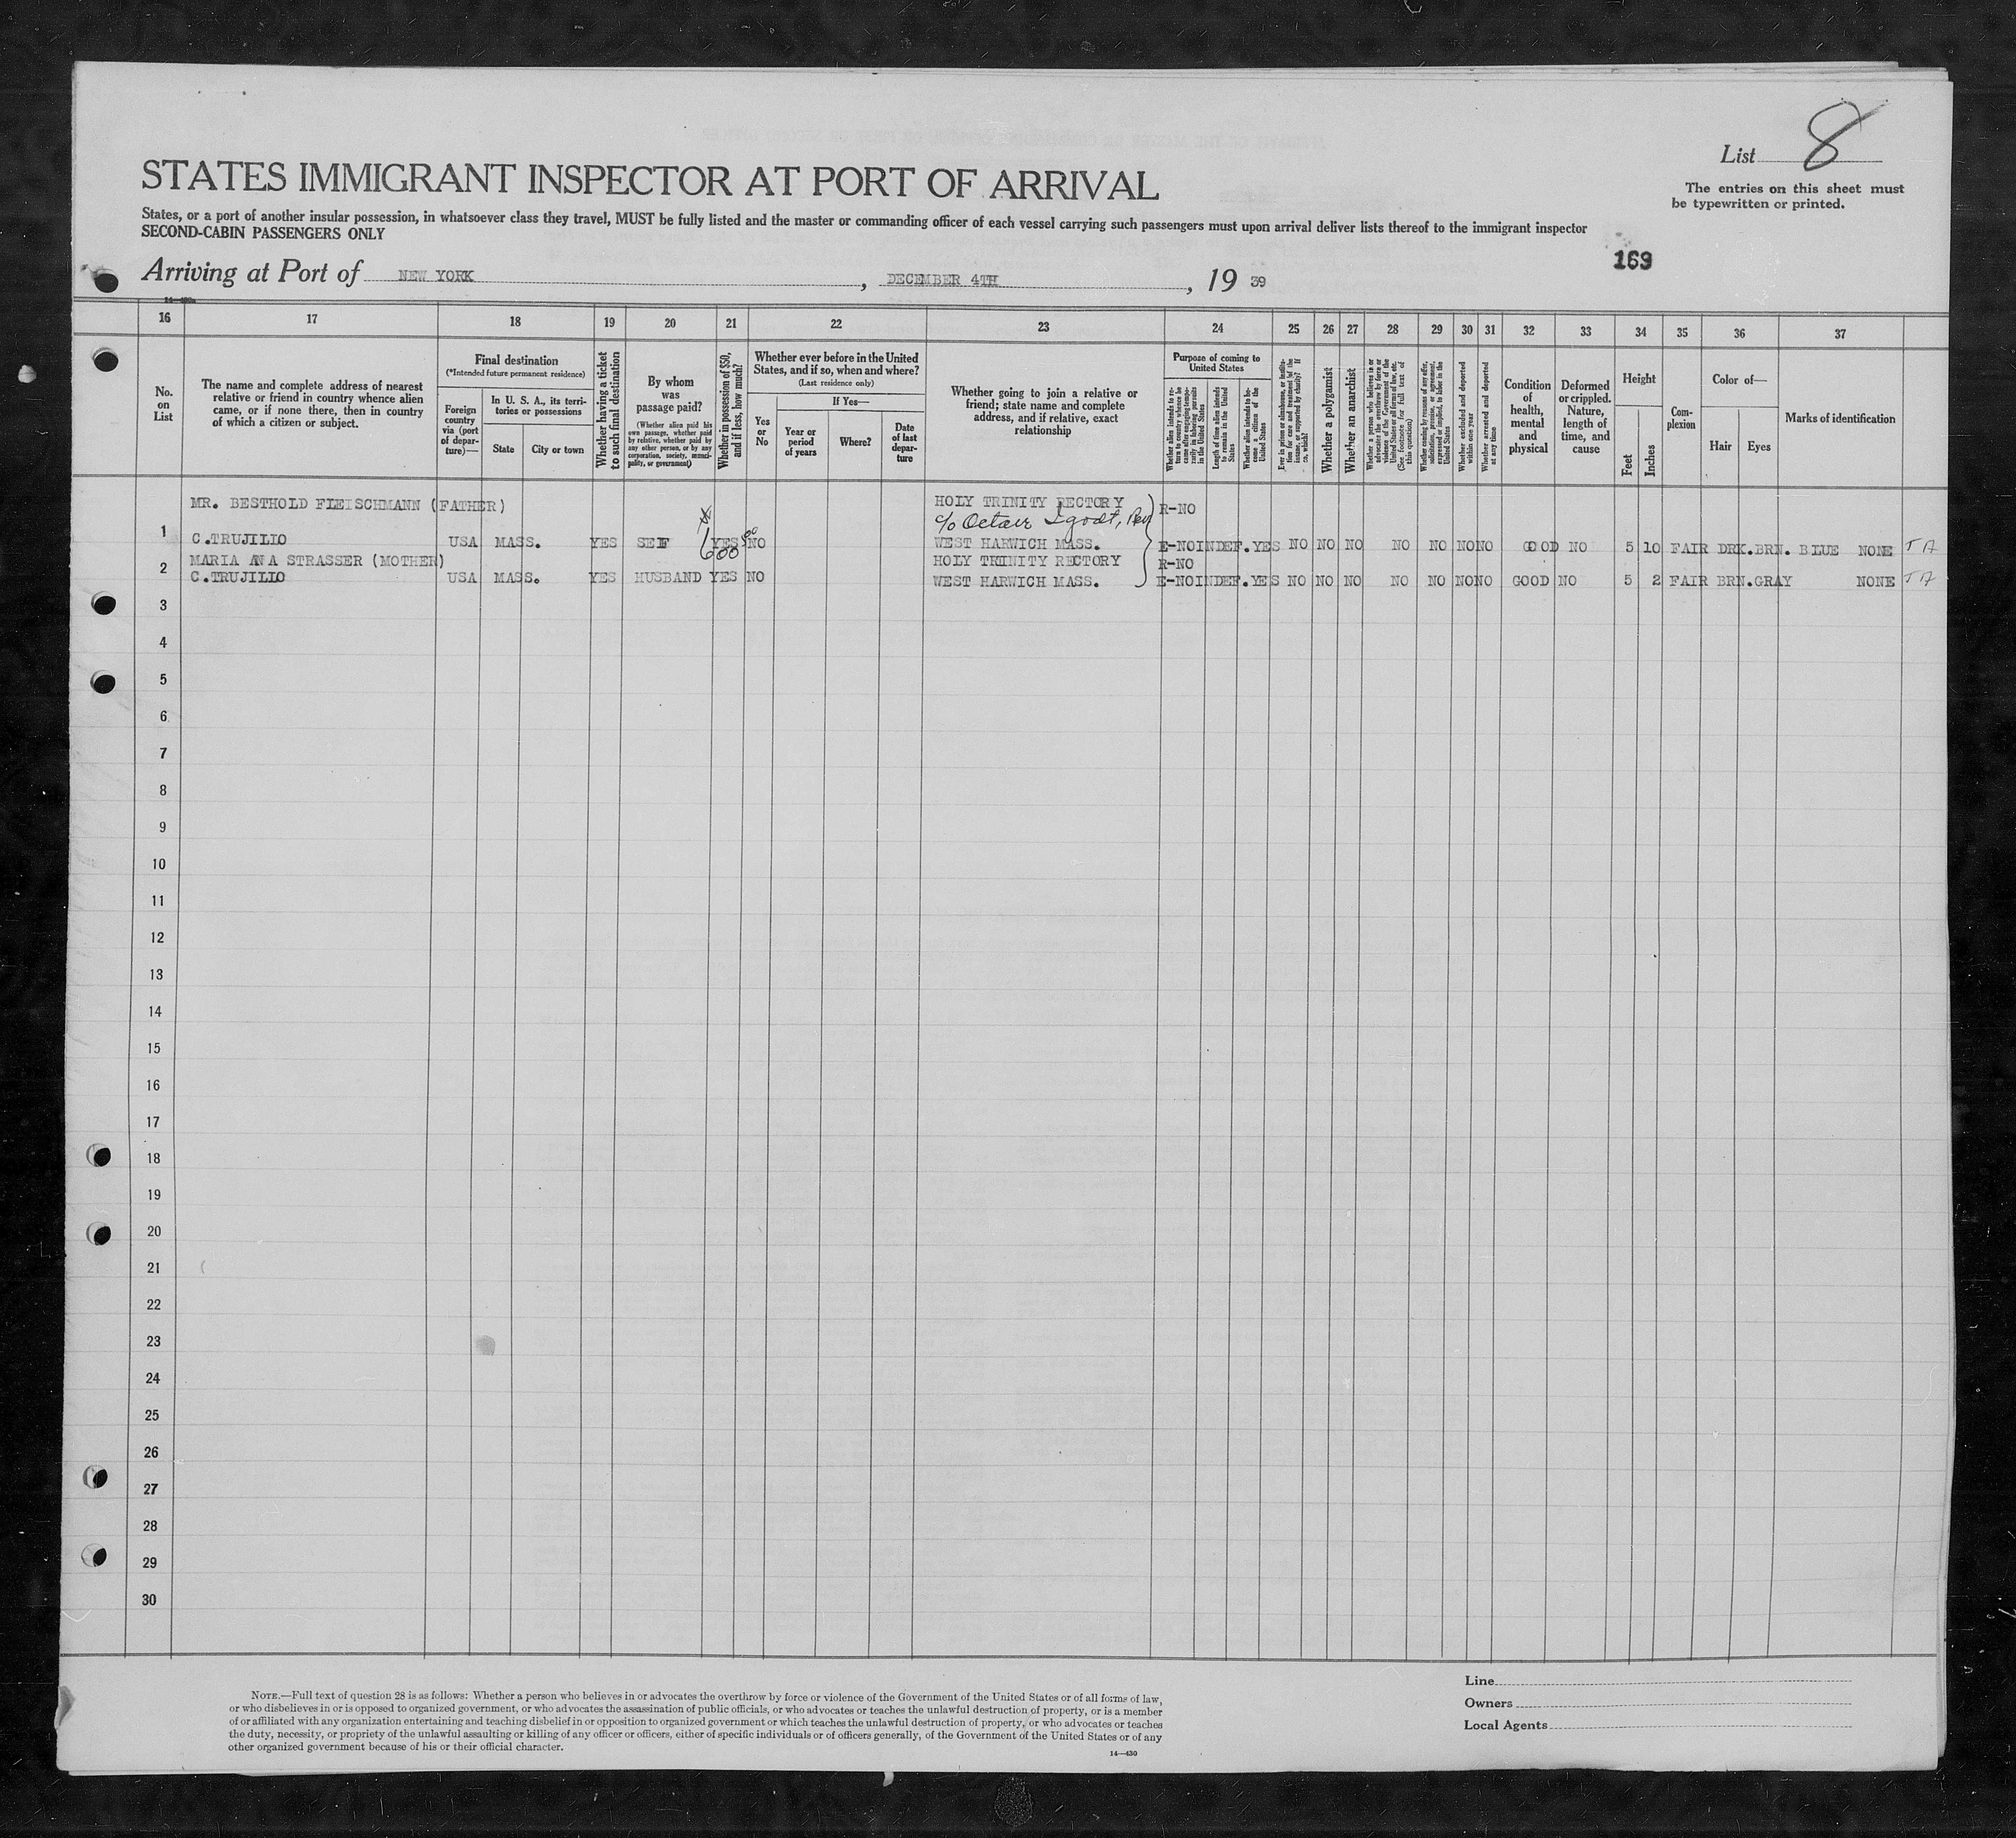 List 8
The entries on this sheet must
be typewritten or printed.
STATES IMMIGRANT INSPECTOR AT PORT OF ARRIVAL
States, or a port of another insular possession, in whatsoever class they travel, MUST be fully listed and the master or commanding officer of each vessel carrying such passengers must upon arrival deliver lists thereof to the immigrant inspector
SECOND-CABIN PASSENGERS ONLY
169
Arriving at Port of NEW YORK, DECEMBER 4TH, 19 39
16 17 18 19 20 21 22 23 24 25 26 27 28 29 30 31 32 33 34 35 36 37
No. on List
The name and complete address of nearest
relative or friend in country whence alien
came, or if none there, then in country
of which a citizen or subject.
Final destination
(*Intended future permanent residence)
Foreign country via (port of departure)—
In U. S. A., its territories or possessions
State
City or town
Whether having a ticket to such final destination
By whom was passage paid?
(Whether alien paid his own passage, whether paid by relative, whether paid by any other person, or by any corporation, society, municipality, or government)
Whether in possession of $50, and if less, how much?
Whether ever before in the United
States, and if so, when and where?
(Last residence only)
Yes or No
If Yes—
Year or period of years
Where?
Date of last departure
Whether going to join a relative or
friend; state name and complete
address, and if relative, exact
relationship
Purpose of coming to United States
Whether alien intends to return to country whence he came after engaging temporarily in laboring pursuits in the United States
Length of time alien intends to remain in the United States
Whether alien intends to become a citizen of the United States
Ever in prison or almshouse, or institution for care and treatment of the insane, or supported by charity? If so, which?
Whether a polygamist
Whether an anarchist
Whether a person who believes in or advocates the overthrow by force or violence of the Government of the United States or all forms of law, etc. (See footnote for full text of this question)
Whether coming by reasons of any offer, solicitation, promise, or agreement, expressed or implied, to labor in the United States
Whether excluded and deported within one year
Whether arrested and deported at any time
Condition of health, mental and physical
Deformed or crippled. Nature, length of time, and cause
Height
Feet
Inches
Complexion
Color of—
Hair
Eyes
Marks of identification
MR. BESTHOLD FLEISCHMANN (FATHER) HOLY TRINITY RECTORY R-NO
c/o Octave
1 C.TRUJILIO USA MASS. YES SELF YES 600 00 NO WEST HARWICH MASS. E-NO INDEF. YES NO NO NO NO NO NO NO GOOD NO 5 10 FAIR DRK.BRN. BLUE NONE
MARIA ANA STRASSER (MOTHER) HOLY TRINITY RECTORY R-NO
2 C.TRUJILIO USA MASS. YES HUSBAND YES NO WEST HARWICH MASS. E-NO INDEF. YES NO NO NO NO NO NO NO GOOD NO 5 2 FAIR BRN. GRAY NONE
3
4
5
6
7
8
9
10
11
12
13
14
15
16
17
18
19
20
21
22
23
24
25
26
27
28
29
30
NOTE.—Full text of question 28 is as follows: Whether a person who believes in or advocates the overthrow by force or violence of the Government of the United States or of all forms of law,
or who disbelieves in or is opposed to organized government, or who advocates the assassination of public officials, or who advocates or teaches the unlawful destruction of property, or is a member
of or affiliated with any organization entertaining and teaching disbelief in or opposition to organized government or which teaches the unlawful destruction of property, or who advocates or teaches
the duty, necessity, or propriety of the unlawful assaulting or killing of any officer or officers, either of specific individuals or of officers generally, of the Government of the United States or of any
other organized government because of his or their official character.
14—430
Line
Owners
Local Agents